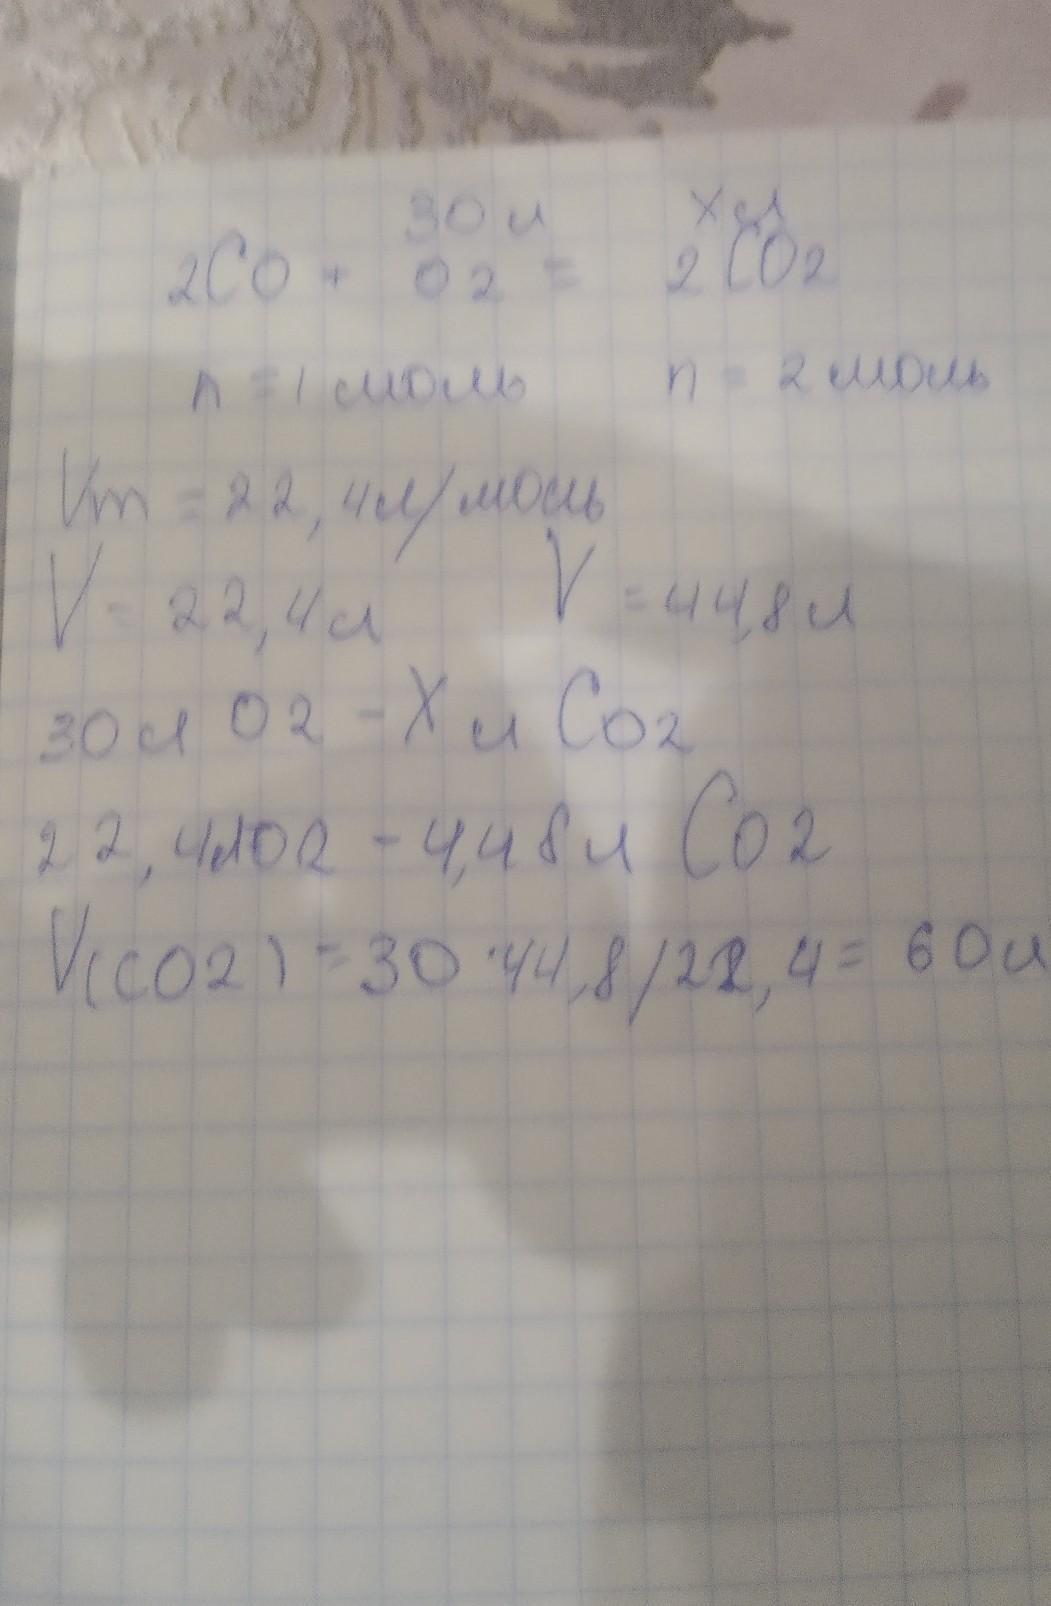 30 л Х л
2CO + O2 = 2CO2
n = 1 моль n = 2 моль
Vm = 22,4л/моль
V = 22,4л V = 44,8л
30л O2 - Х л CO2
22,4лO2 - 4,48л CO2
V(CO2) = 30·44,8/22,4 = 60л